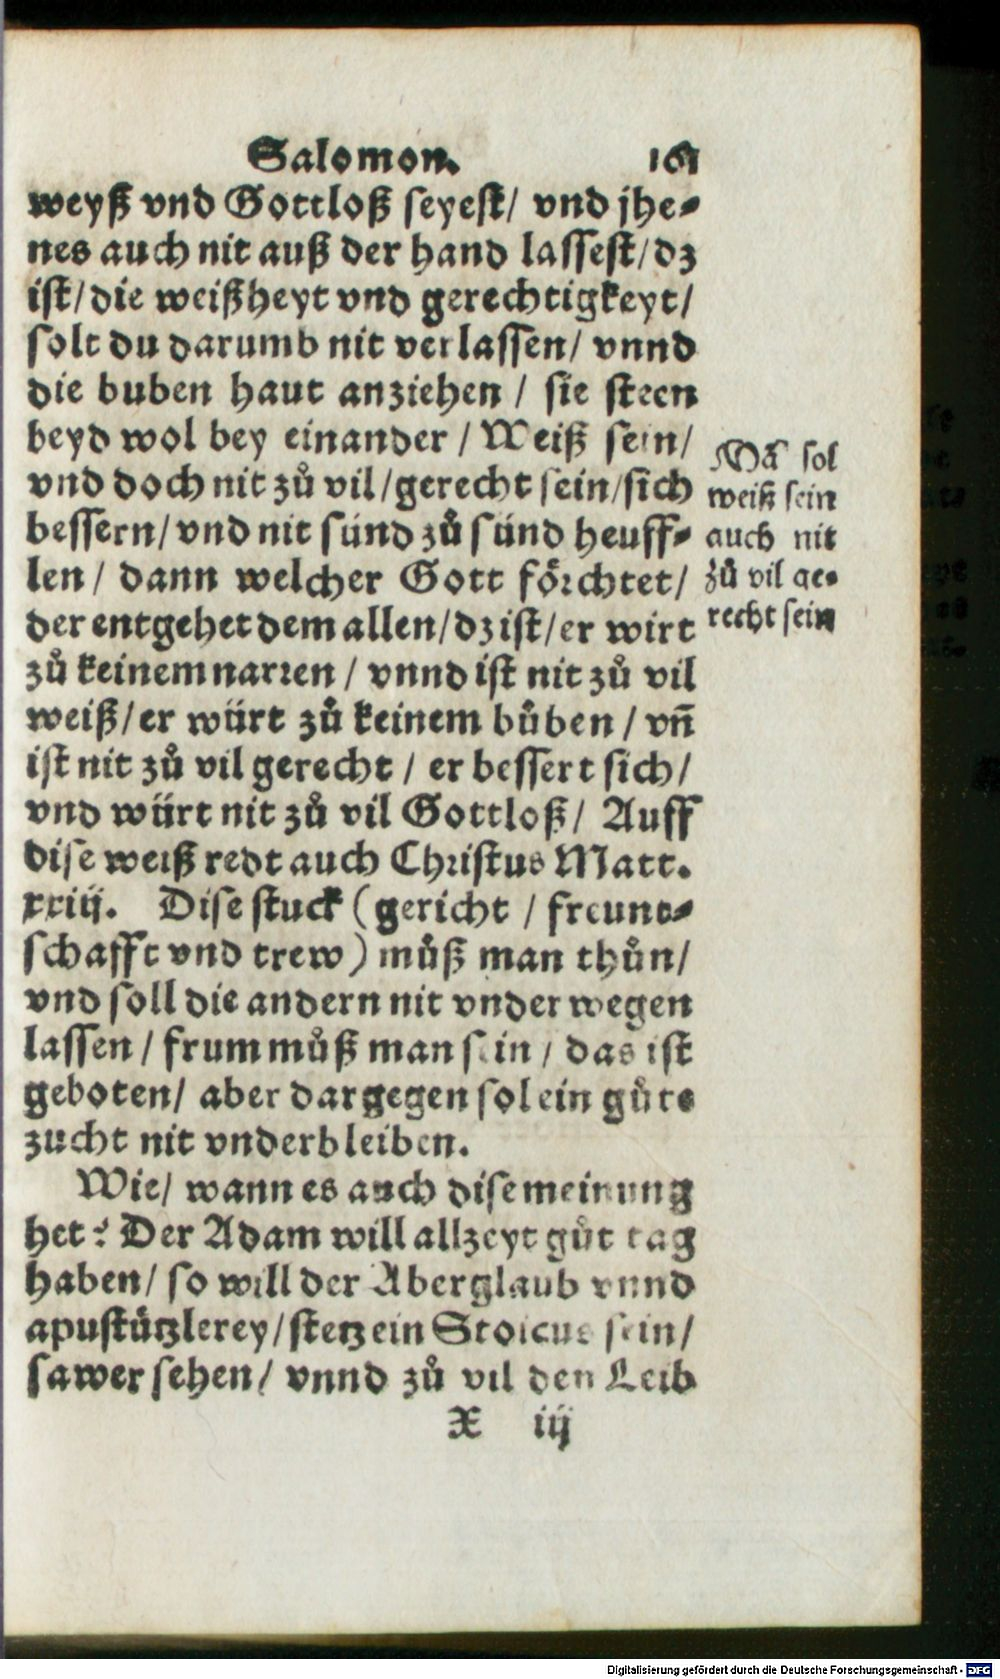 Salomon. 161
weyß vnd Gottloß seyest/ vnd jhe-
nes auch nit auß der hand lassest/dz
ist/die weißheyt vnd gerechtigkeyt/
solt du darumb nit verlassen/ vnnd
die buben haut anziehen / sie steen
beyd wol bey einander / Weiß sein/
vnd doch nit zů vil/gerecht sein/sich
bessern/vnd nit sünd zů sünd heuff-
len/ dann welcher Gott förchtet/
der entgehet dem allen/dz ist/er wirt
zů keinem narren / vnnd ist nit zů vil
weiß/er würt zů keinem bůben / vñ
ist nit zů vil gerecht / er bessert sich/
vnd würt nit zů vil Gottloß/ Auff
dise weiß redt auch Christus Matt.
xxiij. Dise stuck (gericht / freunt-
schafft vnd trew) můß man thůn/
vnd soll die andern nit vnder wegen
lassen / frum můß man sein / das ist
geboten/ aber dargegen sol ein gůte
zucht nit vnderbleiben.
Wie/ wann es auch dise meinung
het? Der Adam will allzeyt gůt tag
haben/ so will der Aberglaub vnnd
apustützlerey/stetz ein Stoicus sein/
sawer sehen/ vnnd zů vil den Leib
X iij
Mã sol
weiß sein
auch nit
zů vil ge-
recht sein
Digitalisierung gefördert durch die Deutsche Forschungsgemeinschaft - DFG